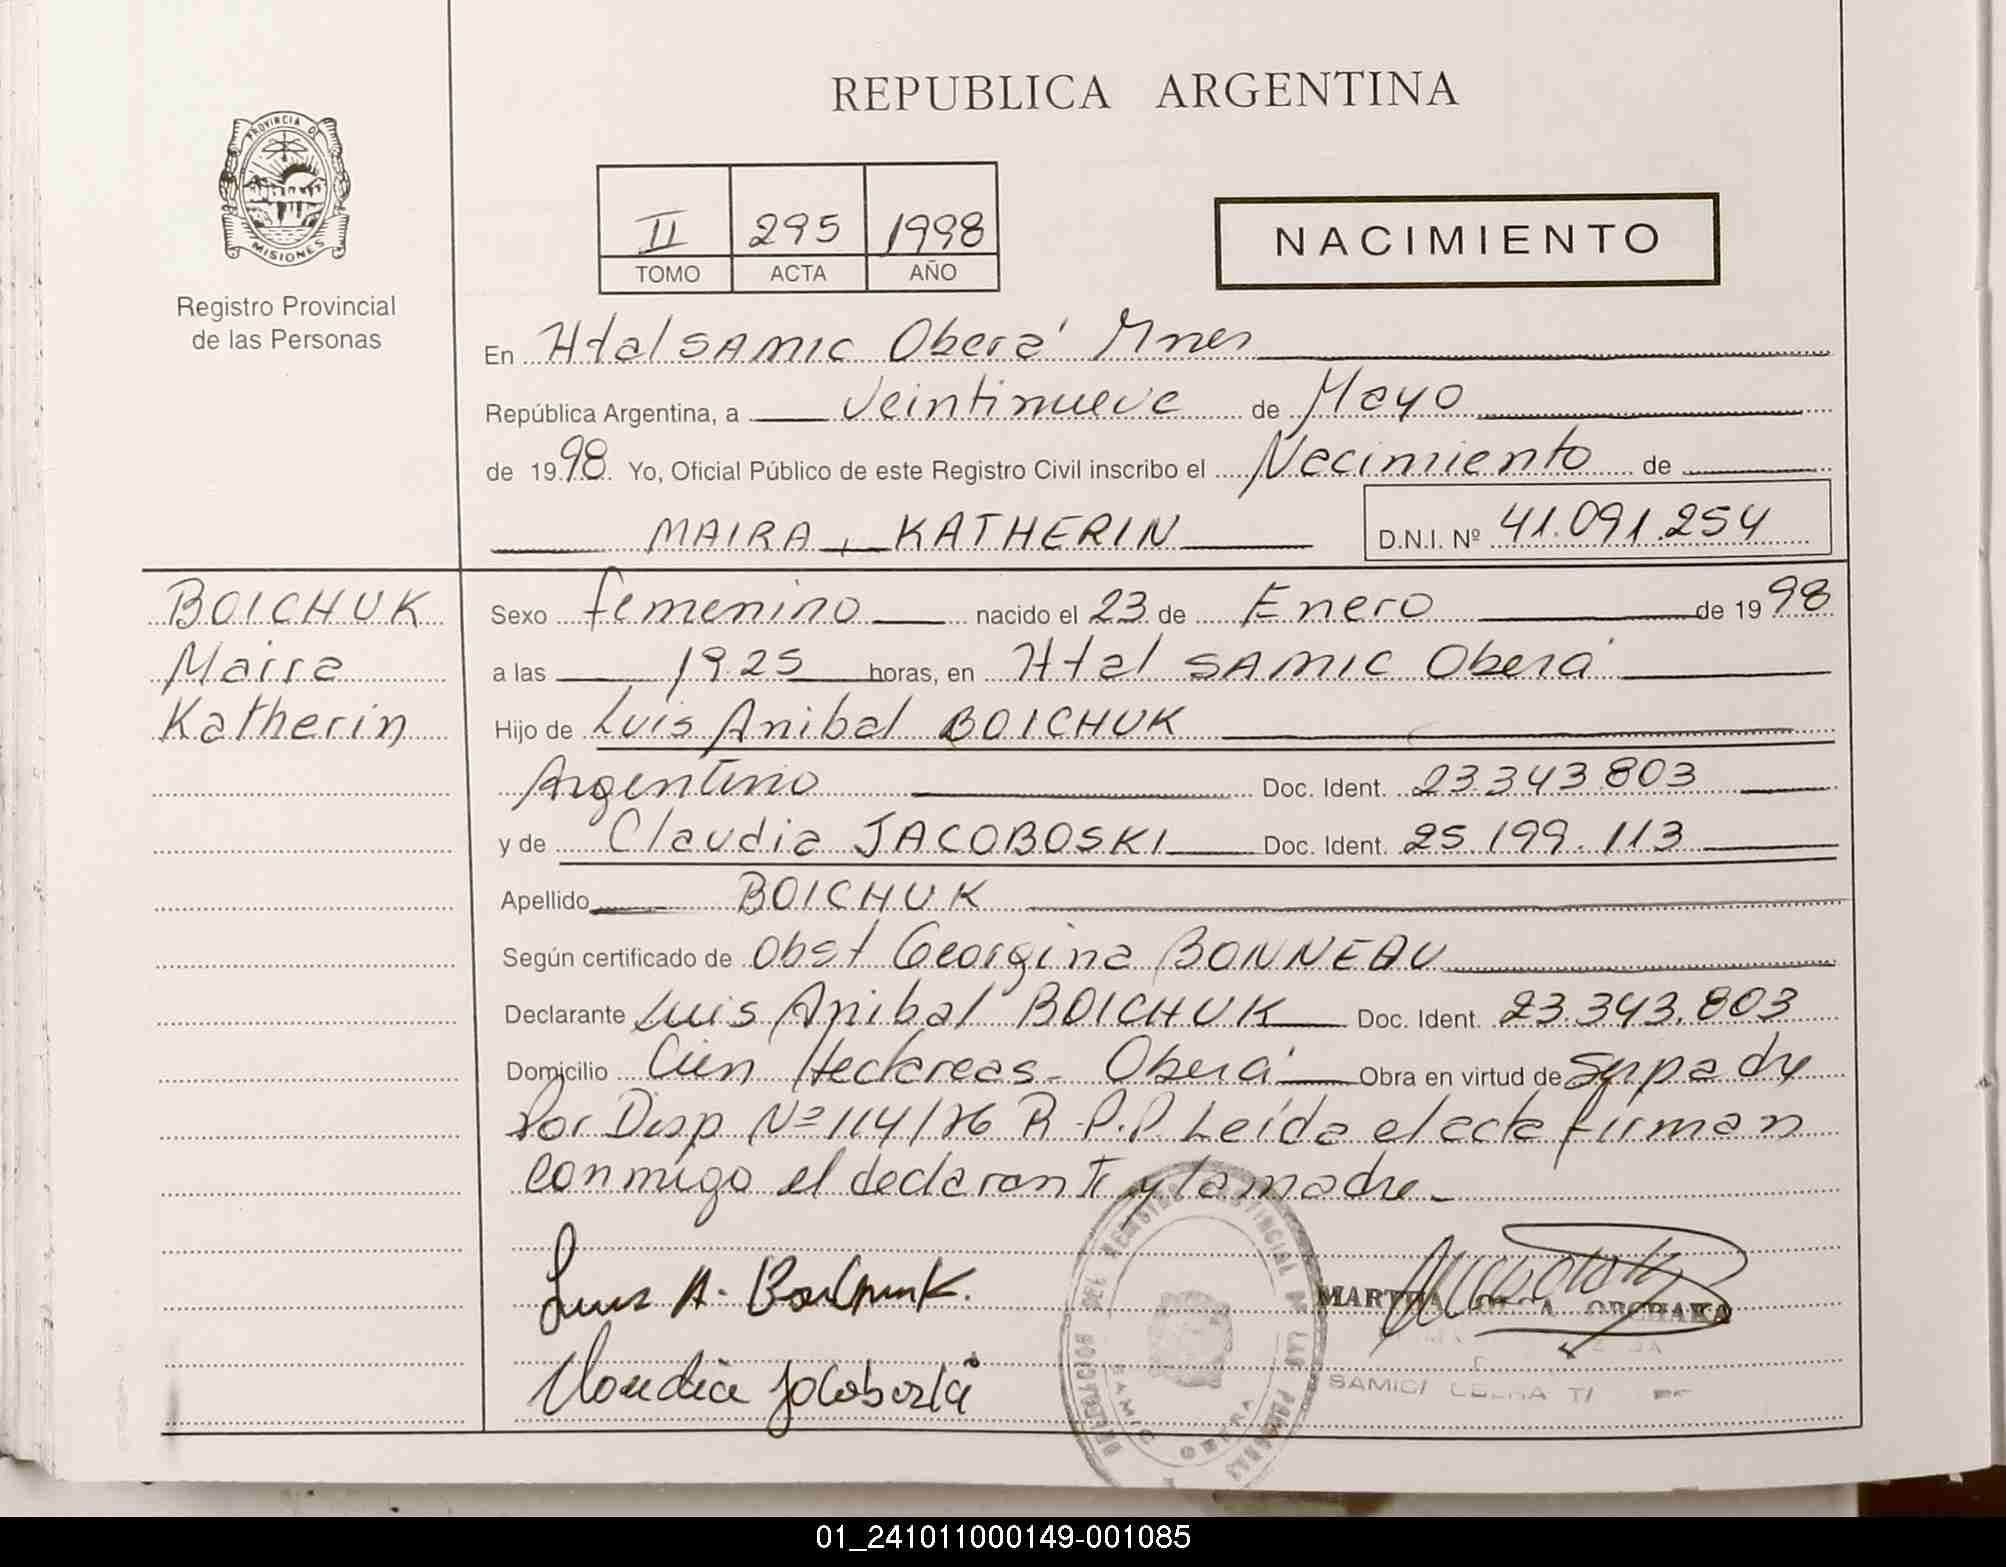 REPUBLICA ARGENTINA
PROVINCIA DE
MISIONES
Registro Provincial
de las Personas
II 295 1998
TOMO ACTA AÑO
NACIMIENTO
En Htal SAMIC Oberá Mnes
República Argentina, a veintinueve de Mayo
de 1998 Yo, Oficial Público de este Registro Civil inscribo el Nacimiento de
MAIRA, KATHERIN D.N.I. Nº 41.091.254
BOICHUK
Maira
Katherin
Sexo femenino nacido el 23 de Enero de 1998
a las 19.25 horas, en Htal SAMIC Oberá
Hijo de Luis Anibal BOICHUK
Argentino Doc. Ident. 23.343.803
y de Claudia JACOBOSKI Doc. Ident. 25.199.113
Apellido BOICHUK
Según certificado de Obst Georgina BONNEAU
Declarante Luis Anibal BOICHUK Doc. Ident. 23.343.803
Domicilio Cien Hectareas - Oberá Obra en virtud de ser padre
Por Disp Nº 114/76 R.P.P. Leída el acta firman
conmigo el declarante y la madre.
Luis A. Boichuk.
Claudia Jacoboski
REGISTRO PROVINCIAL DE LAS PERSONAS
SAMIC OBERA
MARTHA OLGA
SAMIC
01_241011000149-001085